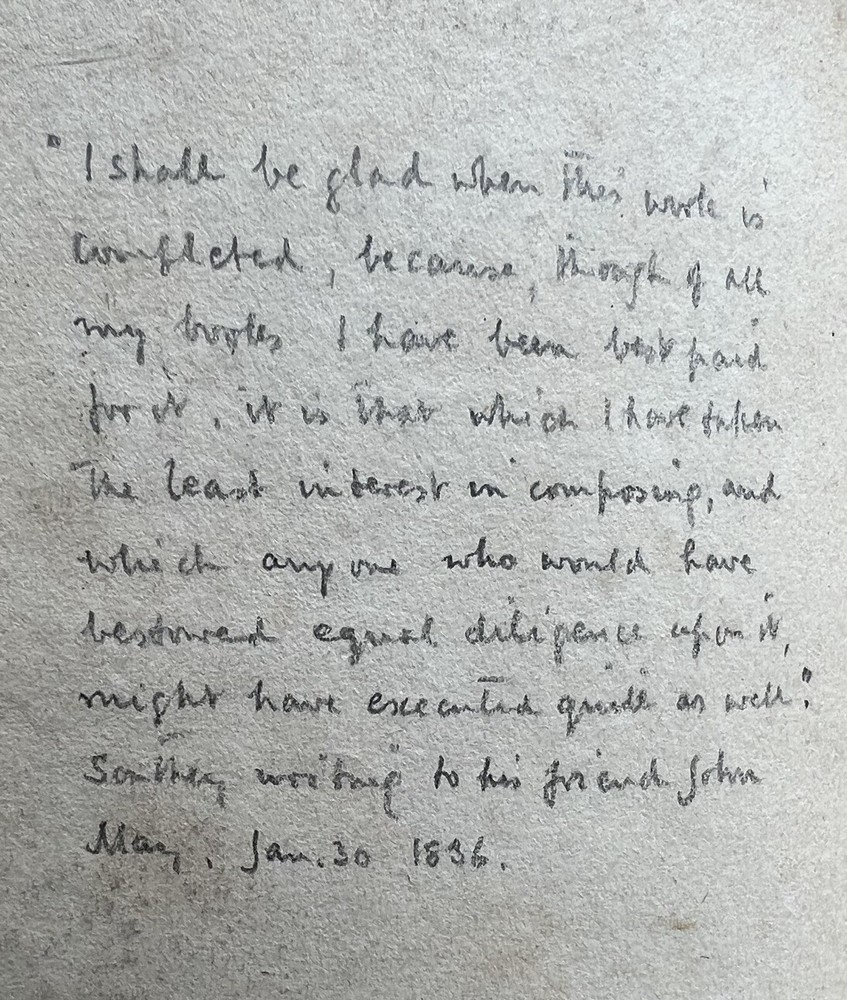 "I shall be glad when this work is
completed, because, though of all
my books I have been best paid
for it, it is that which I have taken
the least interest in composing, and
which any one who would have
bestowed equal diligence upon it,
might have executed quite as well."
Southey writing to his friend John
May, Jan. 30 1836.